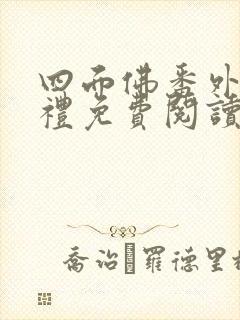 四面佛番外
禮免費閱讀
喬治·羅德里